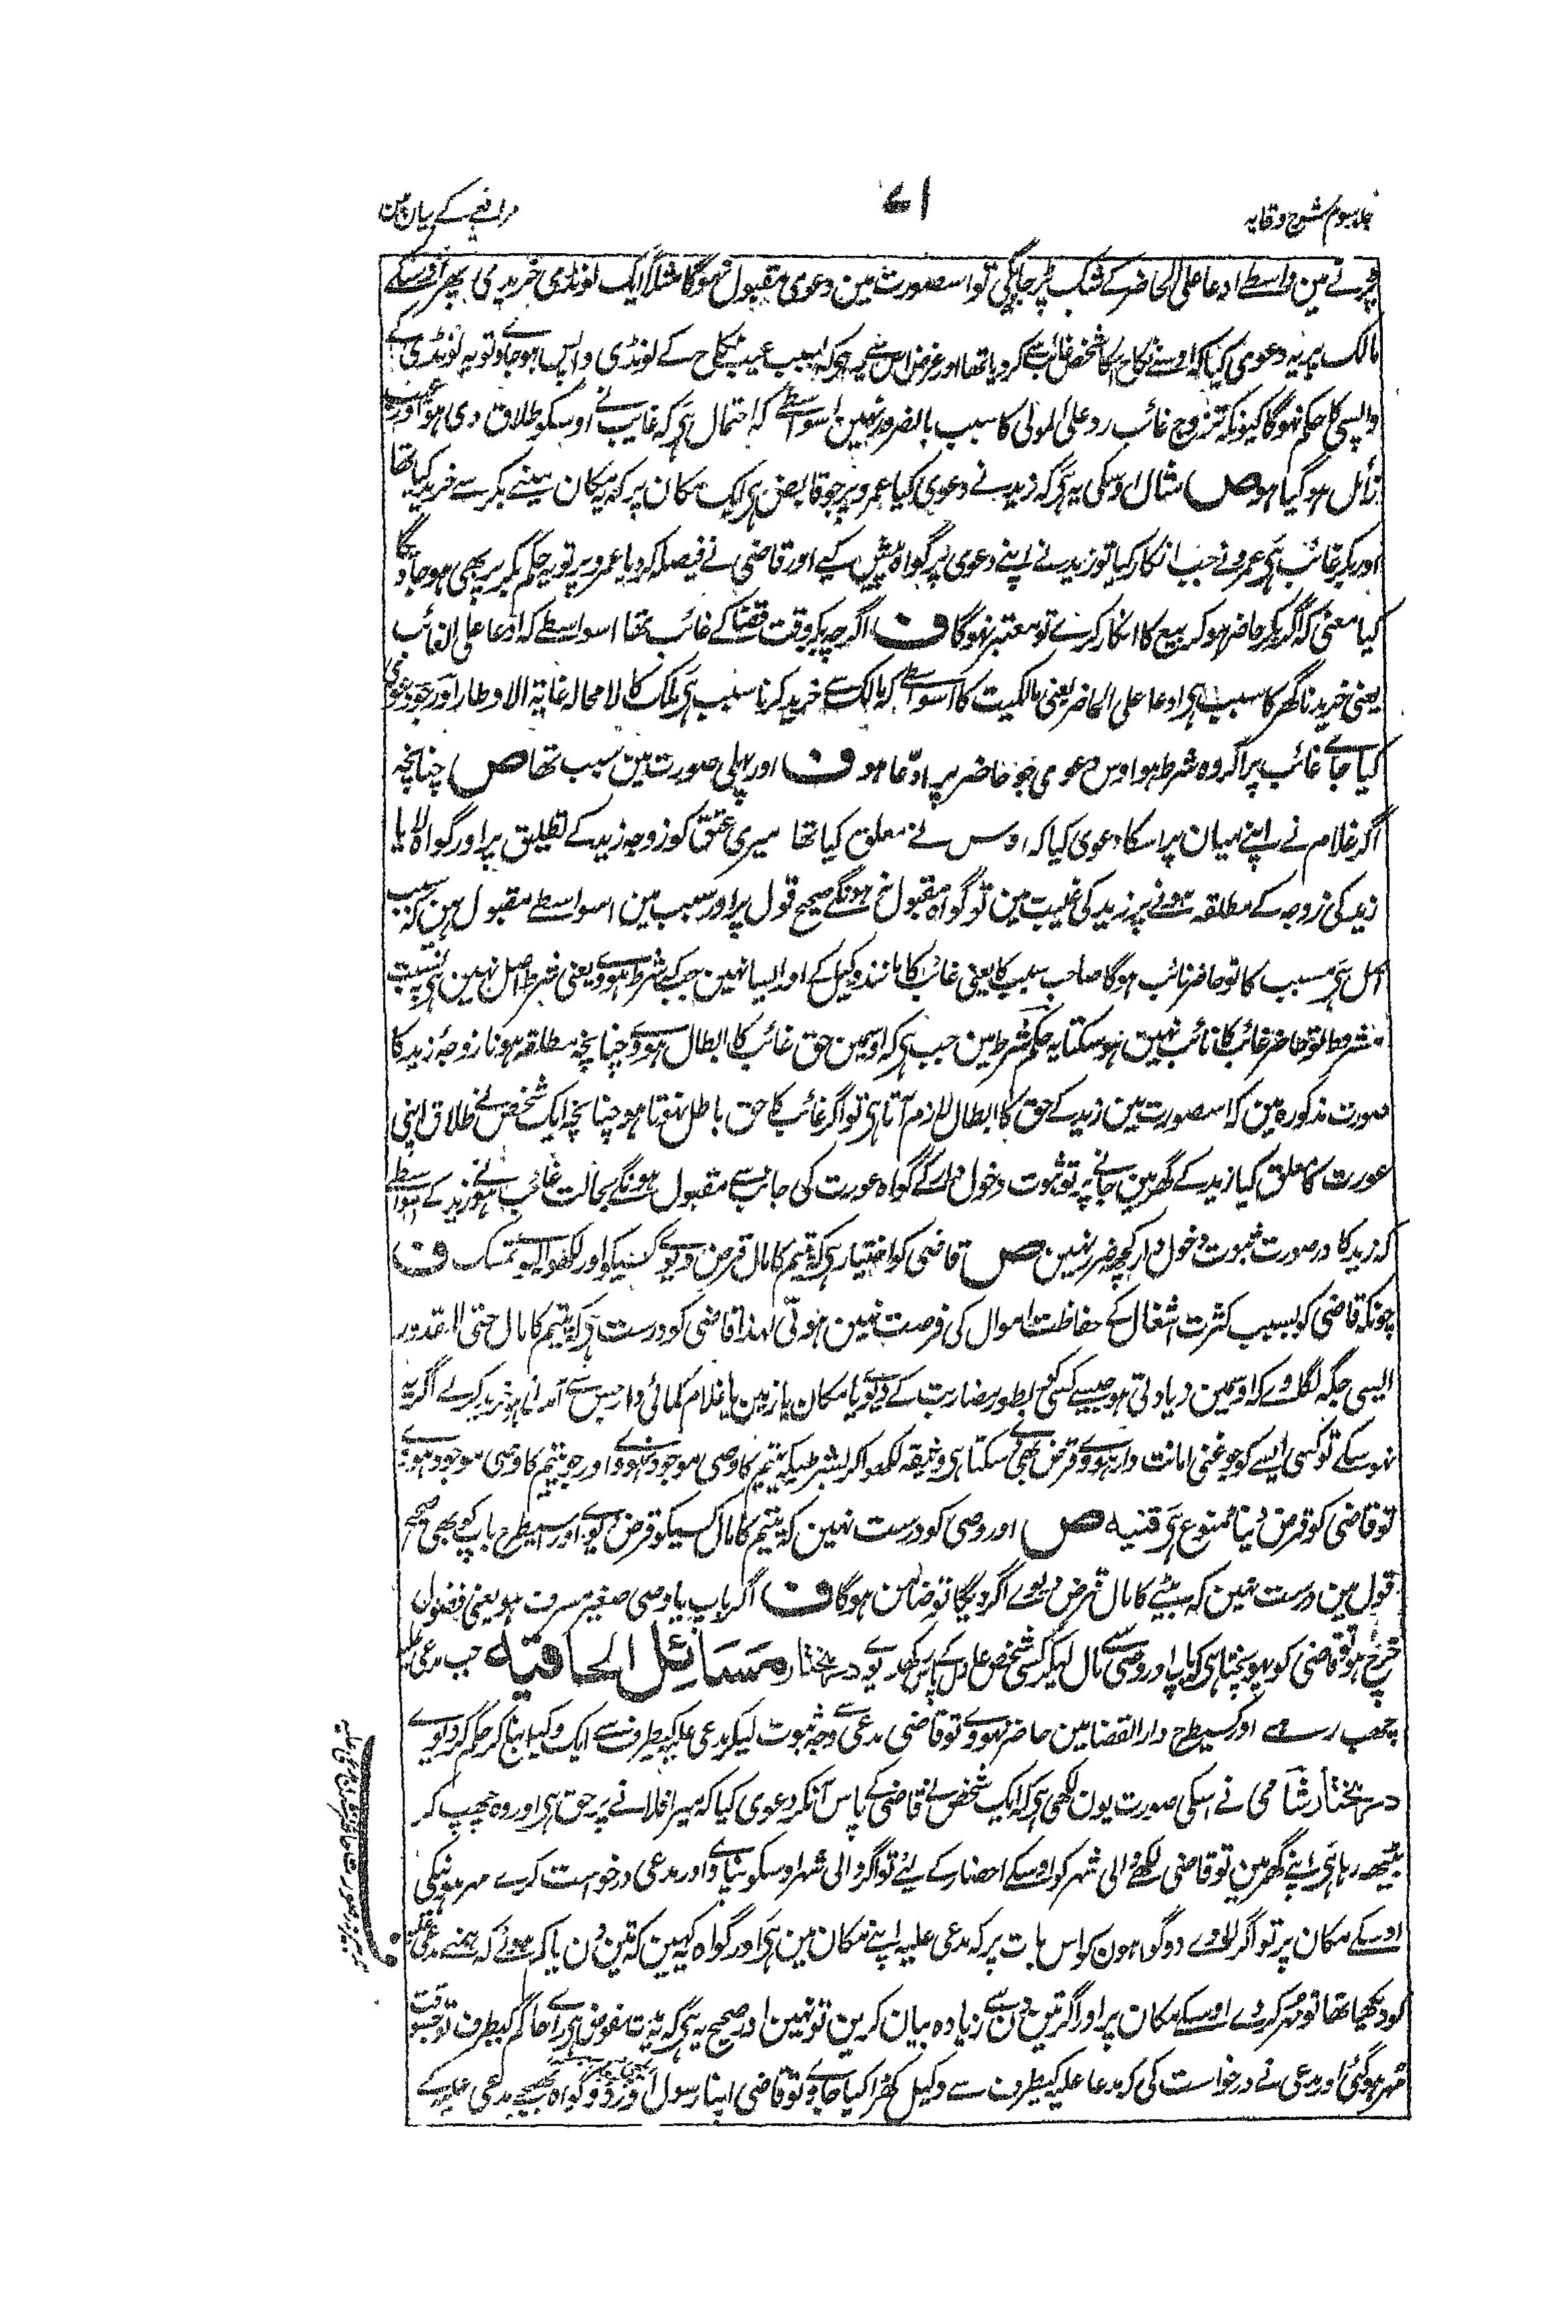 جلد سوم شرح وقایہ
۷۱
مرافعے کے بیان مین
پڑنے مین واسطے ادعا علی الحاضر کے شک پڑ جائیگی تو اسصورت مین دعوی مقبول نہوگا مثلاً ایک لونڈی خریدی پھر اوسکے
مالک پر یہ دعوی کیا کہ اوسنے نکاح اسکا شخص غائب سے کر دیا تھا اور غرض اس سے یہ ہے کہ بسبب عیب نکاح کے لونڈی واپس ہو جاوے تو یہ لونڈی کے
واپسی کا حکم نہوگا کیونکہ تزوج غائب رد علی المولی کا سبب بالضرور نہین اسواسطے کہ احتمال ہی کہ غایب نے اوسکو طلاق دی ہو اور عیب
زائل ہو گیا ہو ص مثال اوسکی یہ ہی کہ زید نے دعوی کیا عمرو پر جو قابض ہی ایک مکان پر کہ یہ مکان مینے بکر سے خرید کیا تھا
اور بکر غائب ہی عمرو نے جب انکار کیا تو زید نے اپنے دعوی پر گواہ پیش کیے اور قاضی نے فیصلہ کر دیا عمرو پر تو یہ حکم بکر پر بھی ہو جاویگا
کیا معنی کہ اگر بکر حاضر ہو کر بیع کا انکار کرے تو معتبر نہوگا ف اگرچہ بکر وقت قضا کے غائب تھا اسواسطے کہ ادعا علی الغائب
یعنی خریدنا گھر کا سبب ہی ادعا علی الحاضر یعنی مالکیت کا اسواسطے کہ مالک سے خرید کرنا سبب ہی ملک کا لا محالہ غایۃ الاوطار اور جو دعوی
کیا جاے غائب پر اگر وہ شرط ہو اوس دعوی جو حاضر پر ادّعا ہو ف اور پہلی صورت مین سبب تھا ص چنانچہ
اگر غلام نے اپنے میان پر اسکا دعوی کیا کہ اوس نے معلق کیا تھا میری عتق کو زوجہ زید کے تطلیق پر اور گواہ لایا
زید کی زوجہ کے مطلقہ ہونے پر زید کی غیبت مین تو گواہ مقبول نہونگے صحیح قول پر اور سبب مین اسواسطے مقبول ہین کہ سبب
اصل ہی مسبب کا تو حاضر نائب ہوگا صاحب سبب کا یعنی غائب کا مانند وکیل کے اور ایسا نہین جبکے شرط ہووے یعنی شرط اصل نہین ہی بنسبت
مشروط تو حاضر غائب کا نائب نہین ہو سکتا یہ حکم شرط مین جب ہی کہ اوسمین حق غائب کا ابطال ہووے چنانچہ مطلقہ ہونا زوجۂ زید کا
صورت مذکورہ مین کہ اسصورت مین زید کے حق کا ابطال لازم آتا ہی تو اگر غائب کا حق باطل نہوتا ہو چنانچہ ایک شخص نے طلاق اپنی
عورت کا معلق کیا زید کے گھر مین جانے پر تو ثبوت دخول دار کے گواہ عورت کی جانب سے مقبول ہونگے بحالت غائب ہونے زید کے اسواسطے
کہ زید کا درصورت ثبوت دخول دار کچھ ضرر نہین ص قاضی کو اختیار ہی کہ یتیم کا مال قرض دیوے کسیکو اور لکھوا لیوے تمسک ف
چونکہ قاضی کو بسبب کثرت اشغال کے حفاظت اموال کی فرصت نہین ہوتی لہذا قاضی کو درست ہی کہ یتیم کا مال حتی المقدور
ایسی جگہ لگا دے کہ اوسمین زیادتی ہو جیسے کسی کو بطور مضاربت کے دیوے یا مکان یا زمین یا غلام کمائی دار جس سے آمدنی ہو خرید کرے اگر یہ
نہو سکے تو کسی ایسے کو جو غنی امانت دار ہووے قرض بھی دے سکتا ہی وثیقہ لکھوا کر بشرطیکہ یتیم کا وصی موجود نہووے اور جو یتیم کا وصی موجود ہووے
تو قاضی کو قرض دینا ممنوع ہی قنیہ ص اور وصی کو درست نہین کہ یتیم کا مال کسیکو قرض دیوے اور اسیطرح باپ کو بھی صحیح
قول مین درست نہین کہ بیٹے کا مال قرض دیوے اگر دیگا تو ضامن ہوگا ف اگر باپ یا وصی صغیر مسرف ہو یعنی فضول
خرچ ہو تو قاضی کو پہونچتا ہی کہ باپ اور وصی سے مال لیکر کسی شخص عادل کے پاس رکھدیوے درمختار مَسَائِل الحاقیہ جب مدعی علیہ
چھپ رہے اور کسیطرح دار القضا مین حاضر نہووے تو قاضی مدعی سے وجہ ثبوت لیکر مدعی علیہ کیطرف سے ایک وکیل بنا کر حکم کر دیوے
درمختار شامی نے اسکی صورت یون لکھی ہی کہ ایک شخص نے قاضی کے پاس آنکر دعوی کیا کہ میرا فلانے پر حق ہی اور وہ چھپ کر
بیٹھ رہا ہی اپنے گھر مین تو قاضی لکھے والی شہر کو اوسکے احضار کے لیئے تو اگر والی شہر اوسکو نپاوے اور مدعی درخواست کرے مہر ہونیکی
اوسکے مکان پر تو اگر لاوے دو گواہون کو اس بات پر کہ مدعی علیہ اپنے مکان مین ہی اور گواہ کہین کہ تین دن یا کم ہوئے کہ ہمنے مدعی علیہ
کو دیکھا تھا تو مہر کر دے اوسکے مکان پر اور اگر تین دن سے زیادہ بیان کرین تو نہین اور صحیح یہ ہی کہ مدت مفوض ہی راے حاکم کیطرف تو جسوقت
مہر ہو گئی اور مدعی نے درخواست کی کہ مدعا علیہ کیطرف سے وکیل کھڑا کیا جاوے تو قاضی اپنا رسول اور دو گواہ بھیجے مدعی علیہ کے